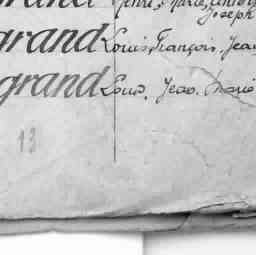 grand Henri, Marie, 
Joseph
grand Louis, François, Jean
grand Louis, Jean, Marie
13